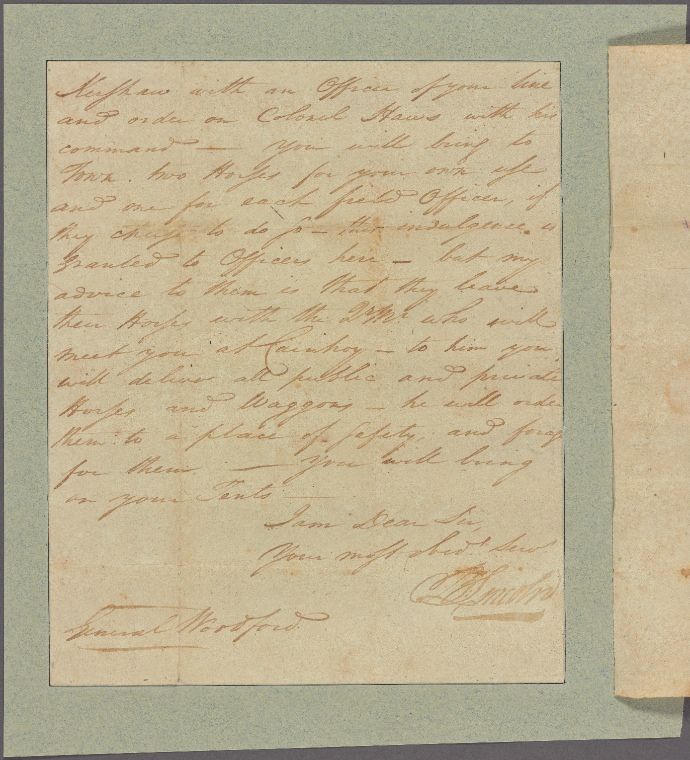 Kershaw with an Officer of your line
and order on Colonel Haws with his
command — you will bring to
Town two Horses for your own use
and one for each field Officer, if
they chuse to do so — this indulgence is
granted to Officers here — but my
advice to them is that they leave
their Horses with the QrMr who will
meet you at Cainhoy — to him you
will deliver all public and private
Horses and Waggons — he will order
them to a place of safety, and forage
for them — you will bring
on your Tents —
I am Dear Sir,
Your most obedt Serv
B Lincoln
General Woodford